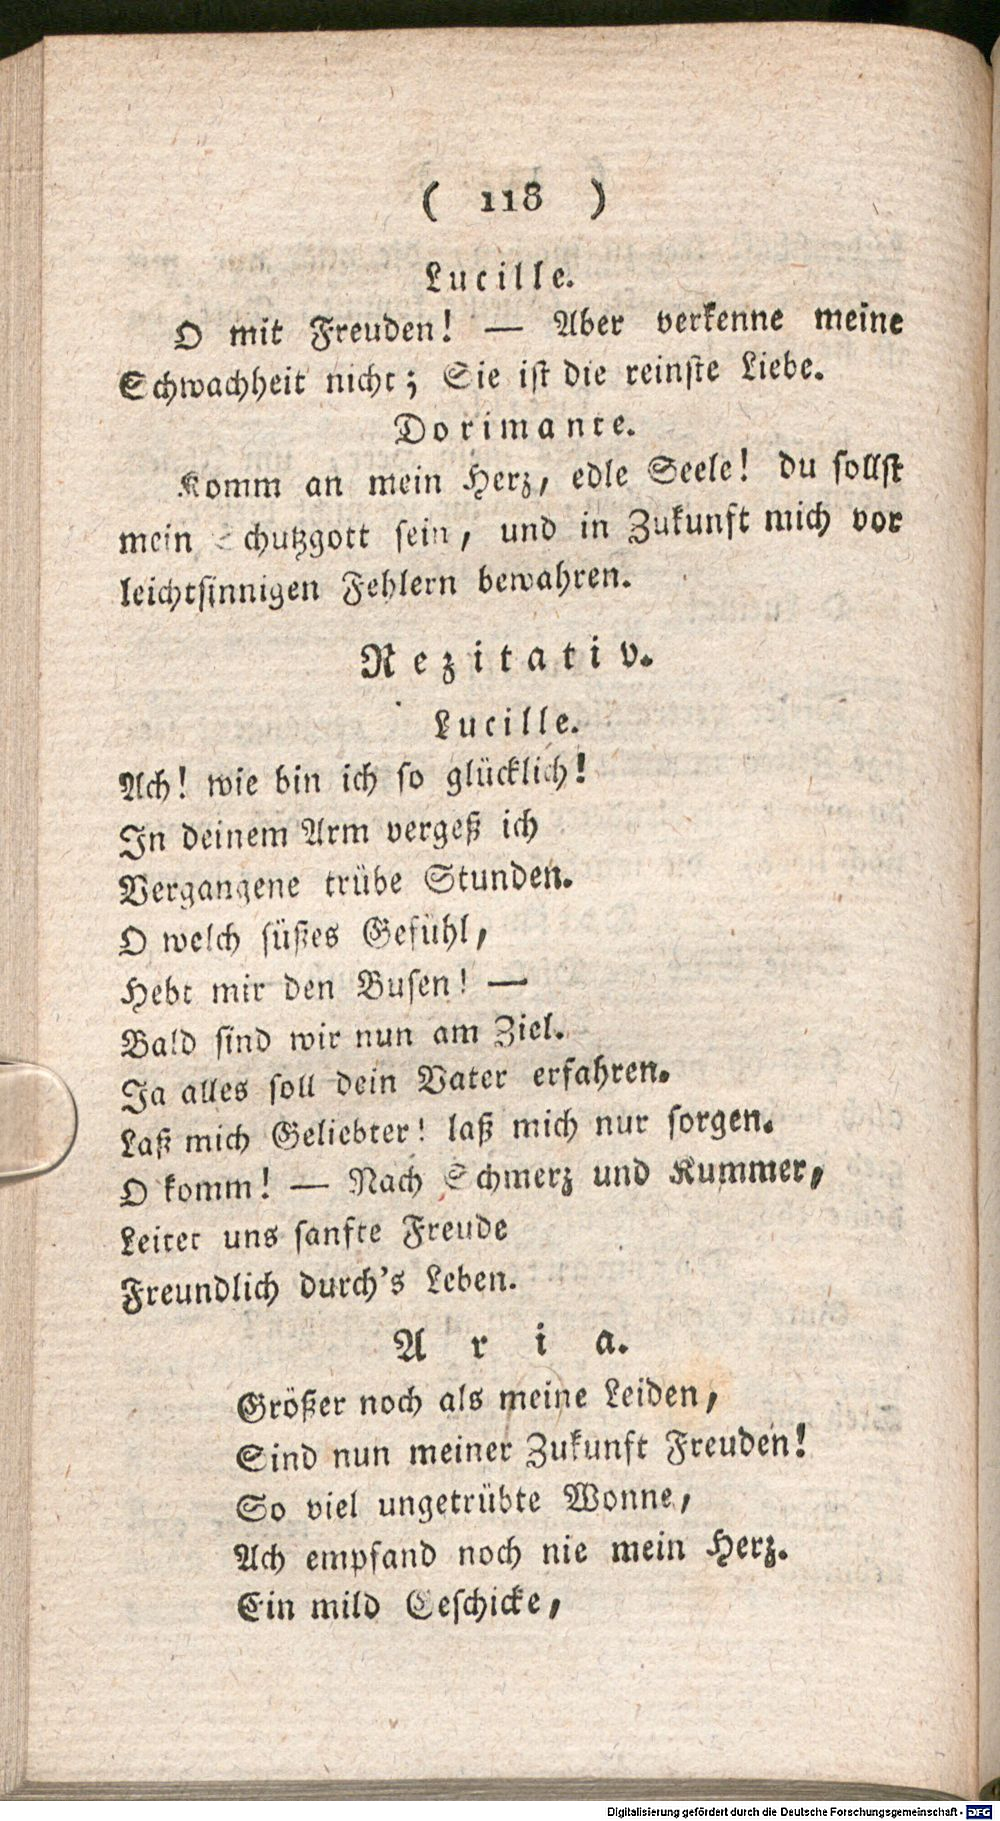 ( 118 )
Lucille.
O mit Freuden! — Aber verkenne meine
Schwachheit nicht; Sie ist die reinste Liebe.
Dorimante.
Komm an mein Herz, edle Seele! du sollst
mein Schutzgott sein, und in Zukunft mich vor
leichtsinnigen Fehlern bewahren.
Rezitativ.
Lucille.
Ach! wie bin ich so glücklich!
In deinem Arm vergeß ich
Vergangene trübe Stunden.
O welch süßes Gefühl,
Hebt mir den Busen! —
Bald sind wir nun am Ziel.
Ja alles soll dein Vater erfahren.
Laß mich Geliebter! laß mich nur sorgen.
O komm! — Nach Schmerz und Kummer,
Leitet uns sanfte Freude
Freundlich durch's Leben.
Aria.
Größer noch als meine Leiden,
Sind nun meiner Zukunft Freuden!
So viel ungetrübte Wonne,
Ach empfand noch nie mein Herz.
Ein mild Geschicke,
Digitalisierung gefördert durch die Deutsche Forschungsgemeinschaft - DFG